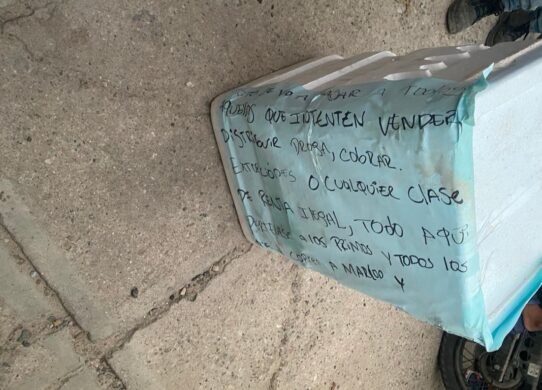 A TODOS
AQUELLOS QUE INTENTEN VENDER,
DISTRIBUIR DROGA, COBRAR.
EXTORCIONES O CUALQUIER CLASE
DE RENTA ILEGAL, TODO AQUI
A LOS PRIMOS Y TODOS LOS
A MARCO Y